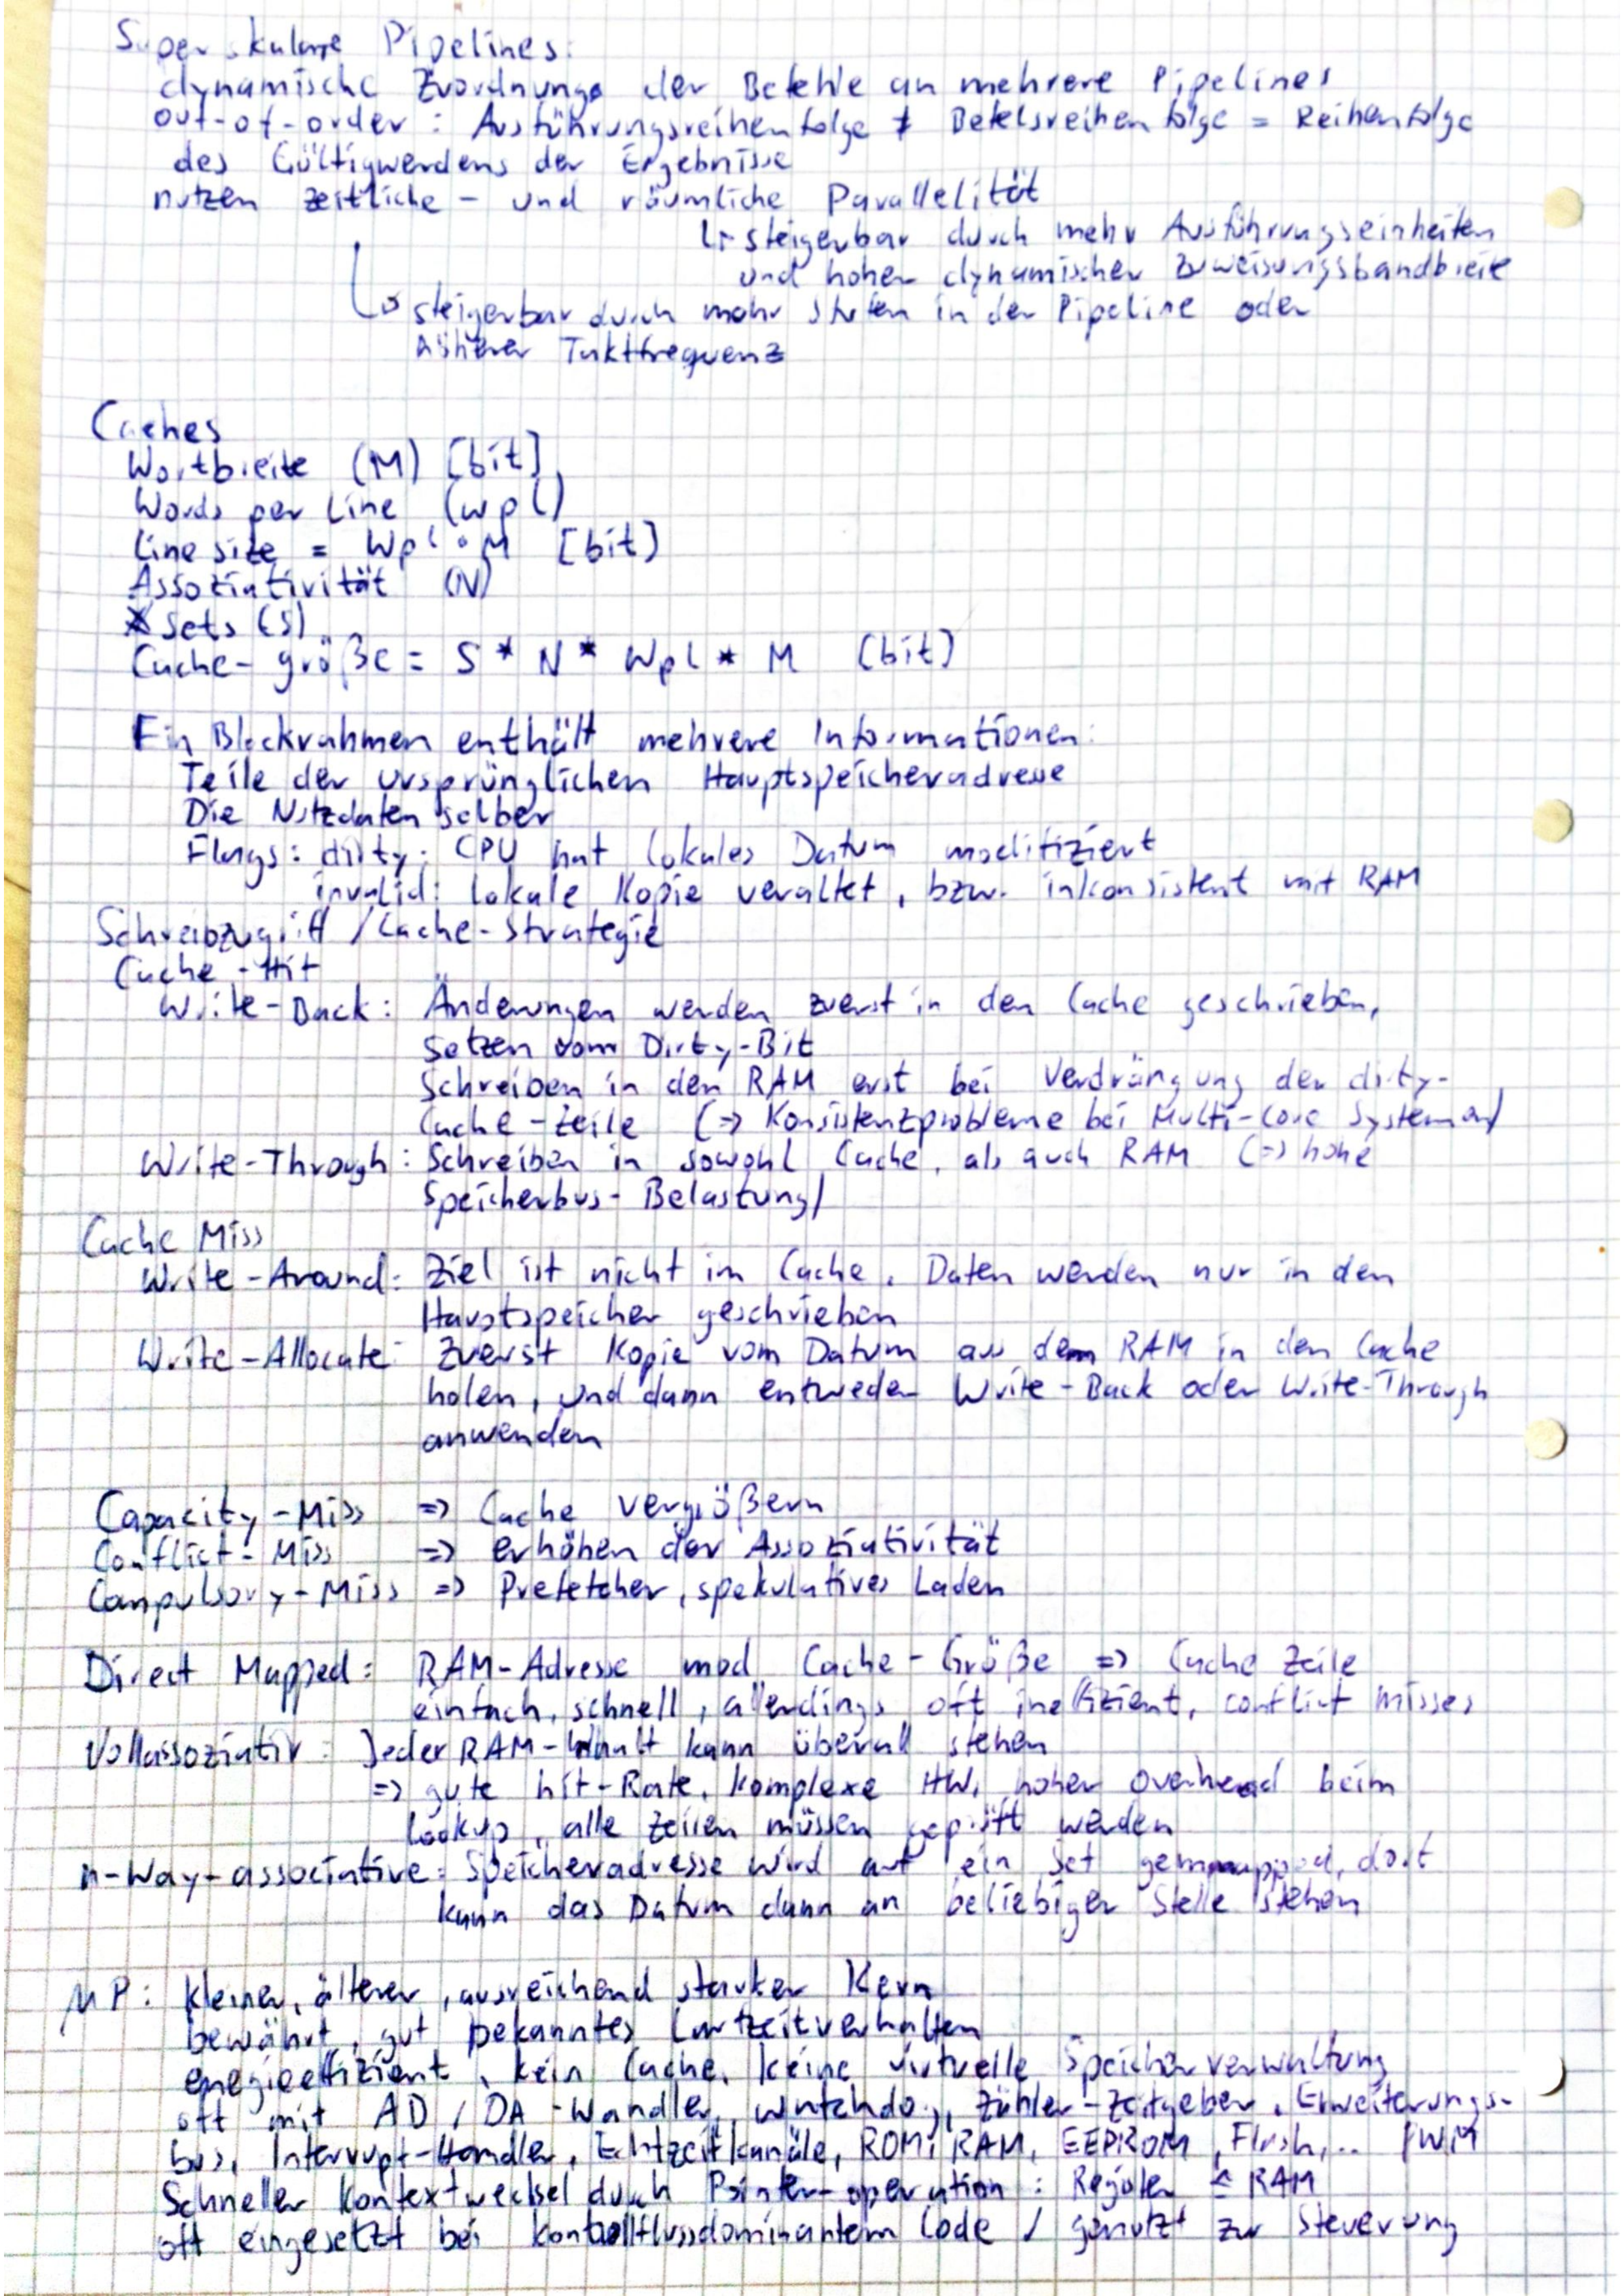 Superskalare Pipelines:
dynamische Zuordnung der Befehle an mehrere Pipelines
out-of-order: Ausführungsreihenfolge ≠ Befelsreihenfolge = Reihenfolge
des Gültigwerdens der Ergebnisse
nutzen zeitliche- und räumliche Parallelität
↳ steigerbar durch mehr Ausführungseinheiten
und hoher dynamischer Zuweisungsbandbreite
↳ steigerbar durch mehr Stufen in der Pipeline oder
höherer Taktfrequenz
Caches
Wortbreite (M) [bit]
Words per Line (wpl)
Line size = Wpl · M [bit]
Assoziativität (N)
Sets (S)
Cache-größe = S * N * Wpl * M [bit]
Ein Blockrahmen enthält mehrere Informationen:
Teile der ursprünglichen Hauptspeicheradresse
Die Nutzdaten selber
Flags: dirty: CPU hat lokales Datum modifiziert
invalid: lokale Kopie veraltet, bzw. inkonsistent mit RAM
Schreibzugriff / Cache-Strategie
Cache-Hit
Write-Back: Änderungen werden zuerst in den Cache geschrieben,
Setzen vom Dirty-Bit
Schreiben in den RAM erst bei Verdrängung der dirty-
Cache-Zeile (=> Konsistenzprobleme bei Multi-Core Systemen)
Write-Through: Schreiben in sowohl Cache, als auch RAM (=> hohe
Speicherbus-Belastung)
Cache Miss
Write-Around: Ziel ist nicht im Cache. Daten werden nur in den
Hauptspeicher geschrieben
Write-Allocate: Zuerst Kopie vom Datum aus dem RAM in den Cache
holen, und dann entweder Write-Back oder Write-Through
anwenden
Capacity-Miss => Cache vergrößern
Conflict-Miss => erhöhen der Assoziativität
Compulsory-Miss => Prefetcher, spekulatives Laden
Direct Mapped: RAM-Adresse mod Cache-Größe => Cache Zeile
einfach, schnell, allerdings oft ineffizient, conflict misses
Vollassoziativ: Jeder RAM-Inhalt kann überall stehen
=> gute hit-Rate, komplexe HW, hoher Overhead beim
Lookup, alle Zeilen müssen geprüft werden
n-Way-associative: Speicheradresse wird auf ein Set gemapped, dort
kann das Datum dann an beliebiger Stelle stehen
µP: kleiner, älterer, ausreichend starker Kern
bewährt, gut bekanntes Laufzeitverhalten
energieeffizient, kein Cache, keine virtuelle Speicherverwaltung
oft mit AD/DA-Wandler, watchdog, Zähler-Zeitgeber, Erweiterungs-
bus, Interrupt-Handler, Echtzeitkanäle, ROM, RAM, EEPROM, Flash,.. PWM
Schneller Kontextwechsel durch Pointer-operation: Register ≙ RAM
oft eingesetzt bei kontrollflussdominantem Code / genutzt zur Steuerung